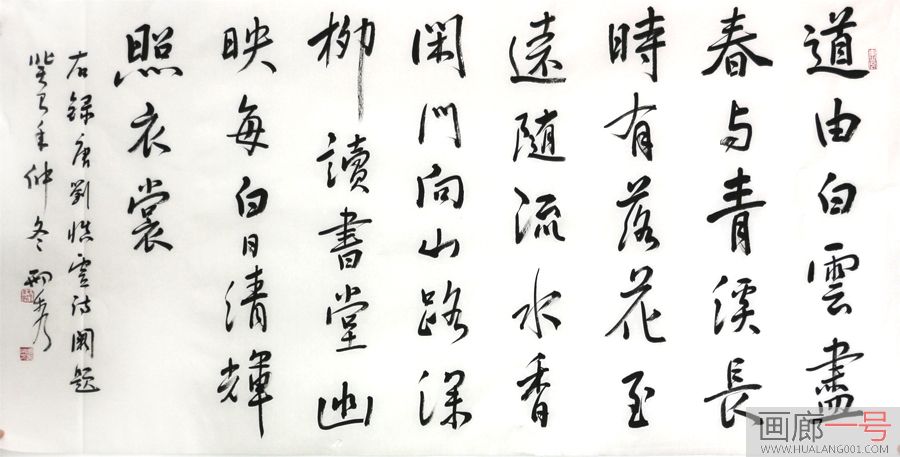 道由白雲盡
春与青溪長
時有落花至
遠隨流水香
閑門向山路深
柳讀書堂幽
映每白日清輝
照衣裳
右錄唐劉慎虛詩闕題
癸巳年仲冬
画廊一号
WWW.HUALANG001.COM